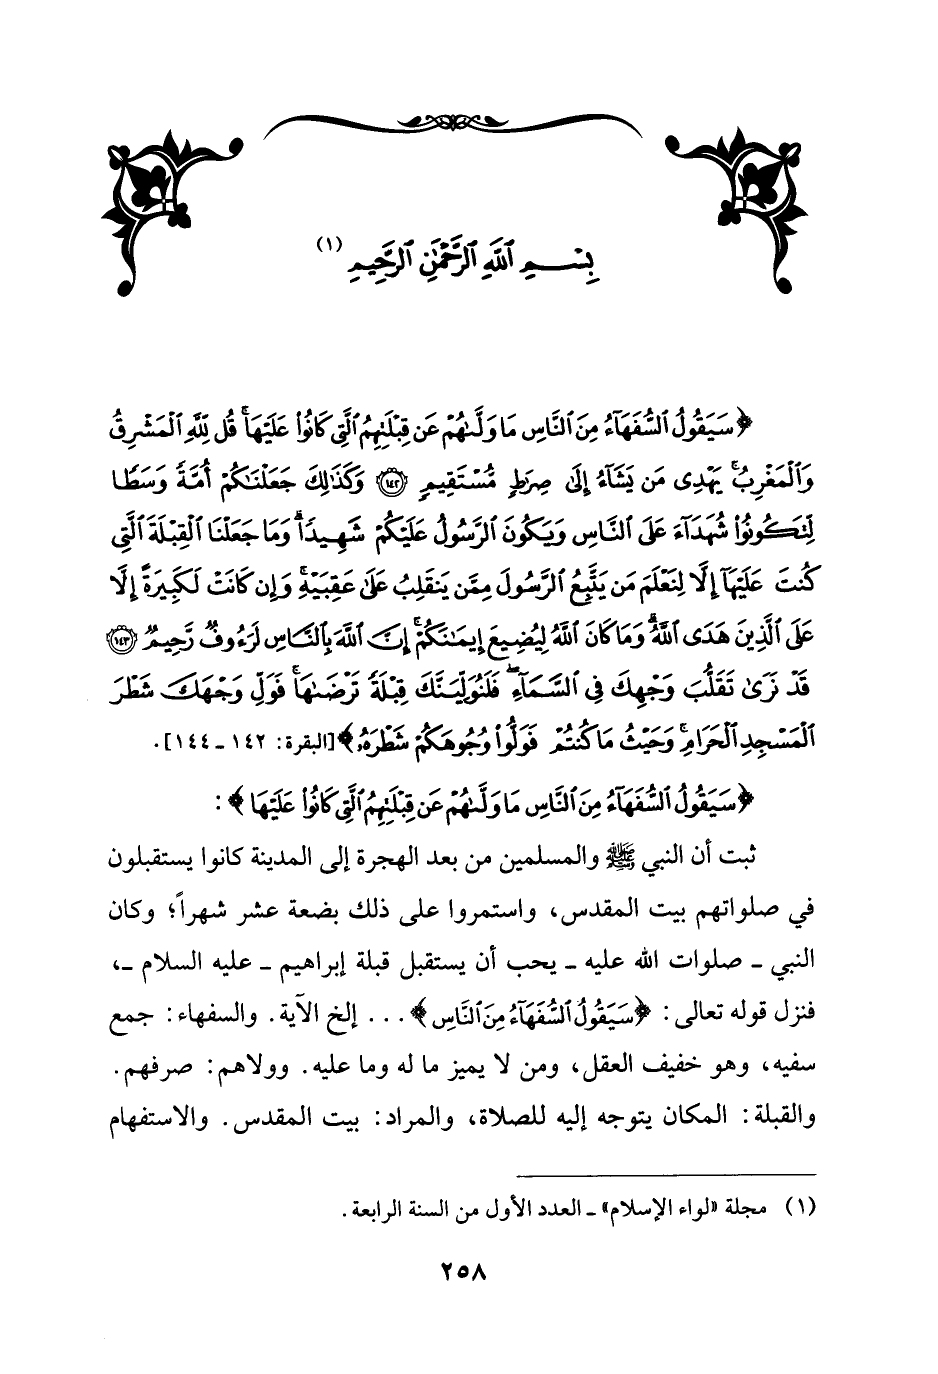 بِسْمِ ٱللَّهِ ٱلرَّحْمَٰنِ ٱلرَّحِيمِ (١)
﴿سَيَقُولُ ٱلسُّفَهَآءُ مِنَ ٱلنَّاسِ مَا وَلَّىٰهُمْ عَن قِبْلَتِهِمُ ٱلَّتِى كَانُوا۟ عَلَيْهَا ۚ قُل لِّلَّهِ ٱلْمَشْرِقُ
وَٱلْمَغْرِبُ ۚ يَهْدِى مَن يَشَآءُ إِلَىٰ صِرَٰطٍ مُّسْتَقِيمٍ ١٤٢ وَكَذَٰلِكَ جَعَلْنَـٰكُمْ أُمَّةً وَسَطًا
لِّتَكُونُوا۟ شُهَدَآءَ عَلَى ٱلنَّاسِ وَيَكُونَ ٱلرَّسُولُ عَلَيْكُمْ شَهِيدًا ۗ وَمَا جَعَلْنَا ٱلْقِبْلَةَ ٱلَّتِى
كُنتَ عَلَيْهَآ إِلَّا لِنَعْلَمَ مَن يَتَّبِعُ ٱلرَّسُولَ مِمَّن يَنقَلِبُ عَلَىٰ عَقِبَيْهِ ۚ وَإِن كَانَتْ لَكَبِيرَةً إِلَّا
عَلَى ٱلَّذِينَ هَدَى ٱللَّهُ ۗ وَمَا كَانَ ٱللَّهُ لِيُضِيعَ إِيمَـٰنَكُمْ ۚ إِنَّ ٱللَّهَ بِٱلنَّاسِ لَرَءُوفٌ رَّحِيمٌ ١٤٣
قَدْ نَرَىٰ تَقَلُّبَ وَجْهِكَ فِى ٱلسَّمَآءِ ۖ فَلَنُوَلِّيَنَّكَ قِبْلَةً تَرْضَىٰهَا ۚ فَوَلِّ وَجْهَكَ شَطْرَ
ٱلْمَسْجِدِ ٱلْحَرَامِ ۚ وَحَيْثُ مَا كُنتُمْ فَوَلُّوا۟ وُجُوهَكُمْ شَطْرَهُۥ﴾ [البقرة: ١٤٢ ـ ١٤٤].
﴿سَيَقُولُ ٱلسُّفَهَآءُ مِنَ ٱلنَّاسِ مَا وَلَّىٰهُمْ عَن قِبْلَتِهِمُ ٱلَّتِى كَانُوا۟ عَلَيْهَا﴾:
ثبت أن النبي ﷺ والمسلمين من بعد الهجرة إلى المدينة كانوا يستقبلون
في صلواتهم بيت المقدس، واستمروا على ذلك بضعة عشر شهراً؛ وكان
النبي ـ صلوات الله عليه ـ يحب أن يستقبل قبلة إبراهيم ـ عليه السلام ـ،
فنزل قوله تعالى: ﴿سَيَقُولُ ٱلسُّفَهَآءُ مِنَ ٱلنَّاسِ﴾... إلخ الآية. والسفهاء: جمع
سفيه، وهو خفيف العقل، ومن لا يميز ما له وما عليه. وولاهم: صرفهم.
والقبلة: المكان يتوجه إليه للصلاة، والمراد: بيت المقدس. والاستفهام
(١) مجلة «لواء الإسلام» ـ العدد الأول من السنة الرابعة.
٢٥٨